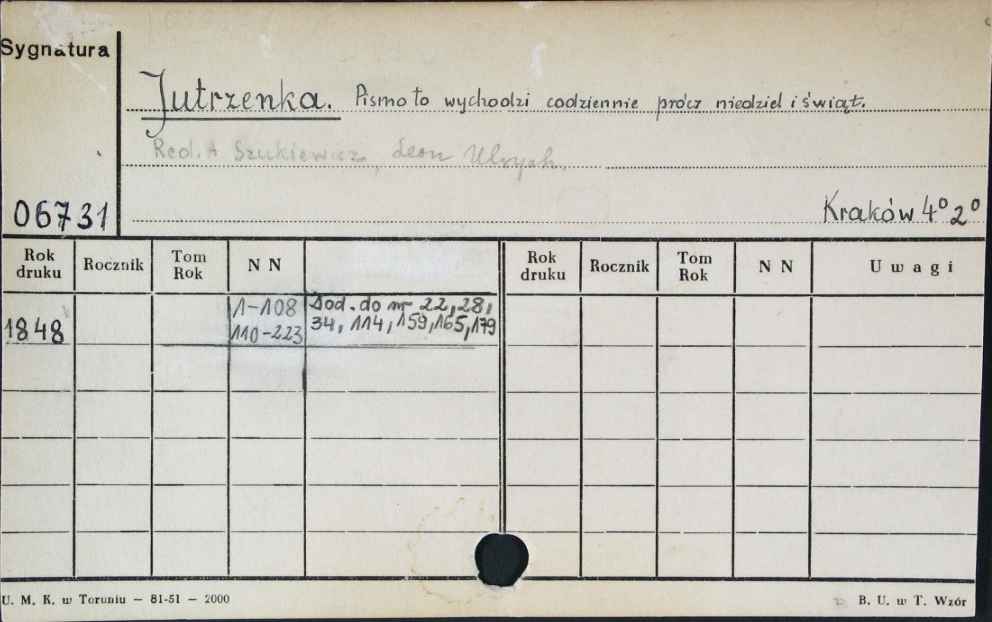 Sygnatura
Jutrzenka. Pismo to wychodzi codziennie prócz niedziel i świąt.
Red. A Szukiewicz, Leon Ulrych.
06731
Kraków 4° 2°
Rok druku Rocznik Tom Rok N N Rok druku Rocznik Tom Rok N N Uwagi
1-108 Dod. do nr 22, 28,
1848 110-223 34, 114, 159, 165, 179
U. M. K. w Toruniu — 81-51 — 2000 B. U. w T. Wzór